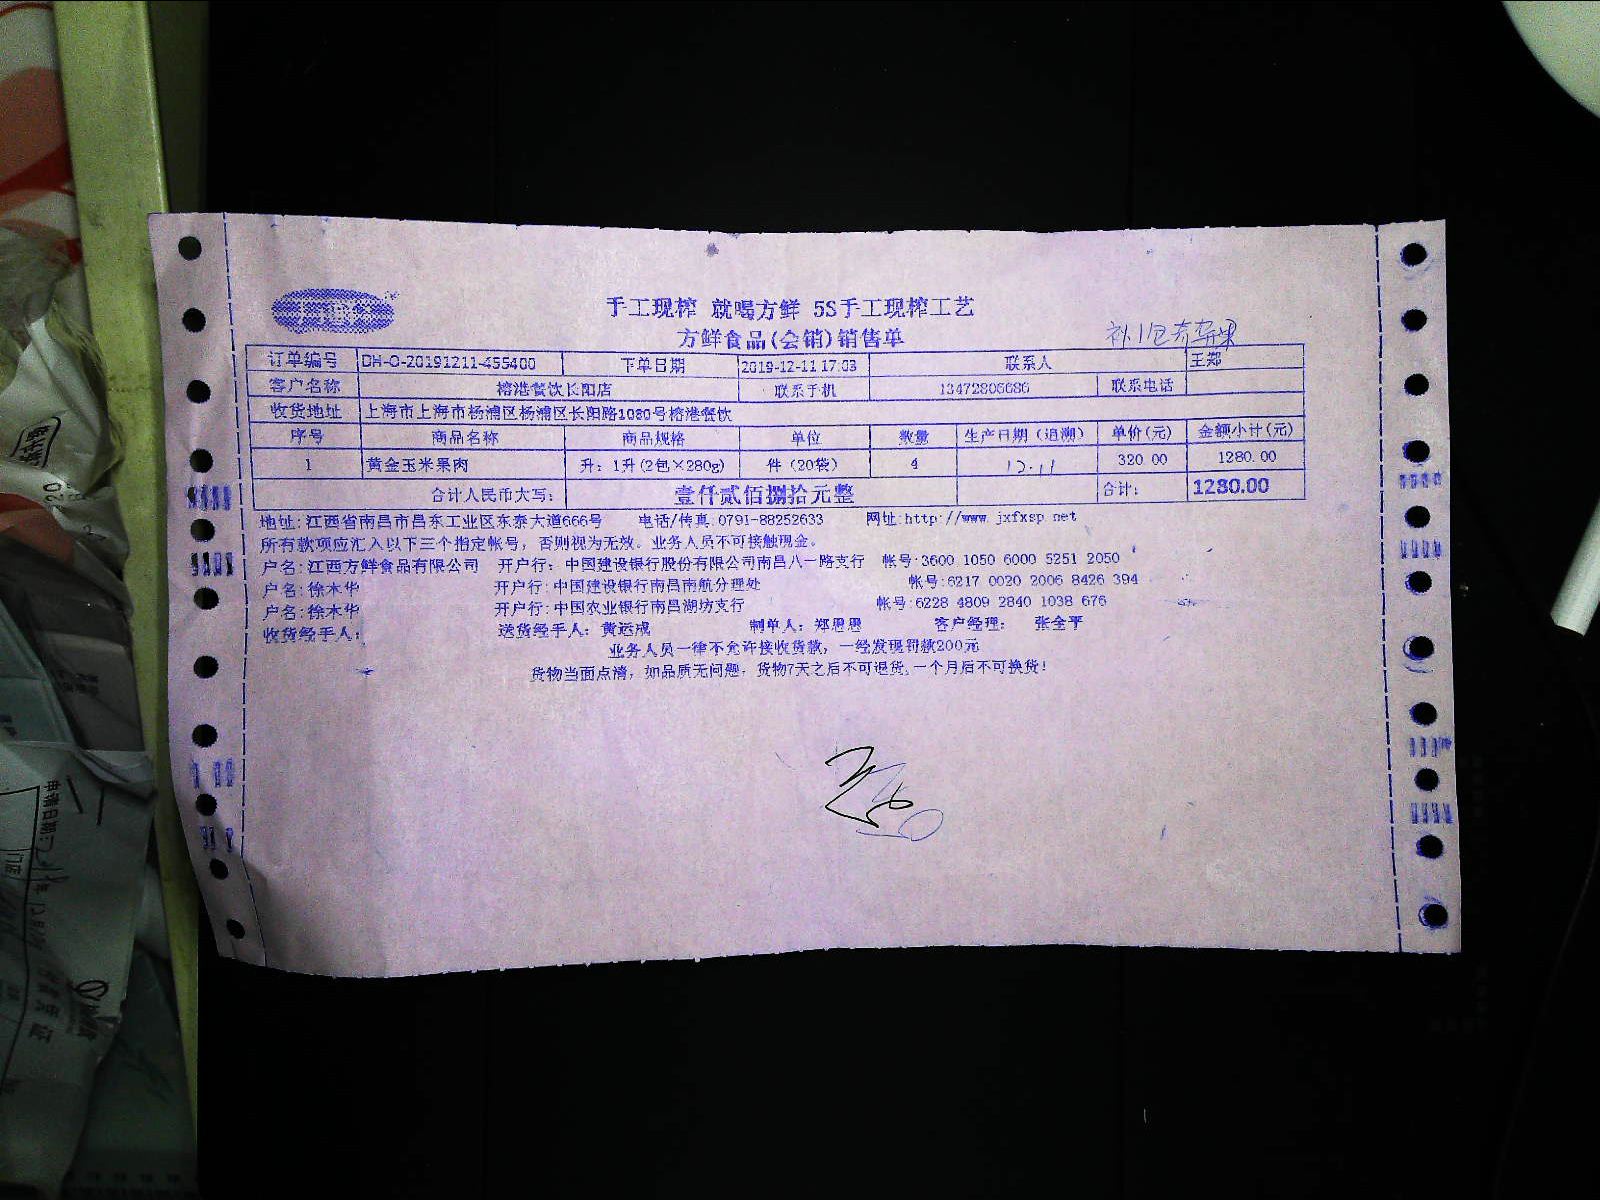 手工现榨 就喝方鲜 5S手工现榨工艺
方鲜食品(会销)销售单
补1包
订单编号 DH-O-20191211-455400 下单日期 2019-12-11 17:03 联系人 王郑
客户名称 榕港餐饮长阳店 联系手机 13472806686 联系电话
收货地址 上海市上海市杨浦区杨浦区长阳路1080号榕港餐饮
序号 商品名称 商品规格 单位 数量 生产日期（追溯） 单价(元) 金额小计(元)
1 黄金玉米果肉 升：1升(2包×280g) 件（20袋） 4 12.11 320.00 1280.00
合计人民币大写： 壹仟贰佰捌拾元整 合计： 1280.00
地址:江西省南昌市昌东工业区东泰大道666号 电话/传真:0791-88252633 网址:http://www.jxfxsp.net
所有款项应汇入以下三个指定帐号，否则视为无效。业务人员不可接触现金。
户名:江西方鲜食品有限公司 开户行：中国建设银行股份有限公司南昌八一路支行 帐号:3600 1050 6000 5251 2050
户名:徐木华 开户行:中国建设银行南昌南航分理处 帐号:6217 0020 2006 8426 394
户名:徐木华 开户行:中国农业银行南昌湖坊支行 帐号:6228 4809 2840 1038 676
收货经手人： 送货经手人：黄运成 制单人：郑恩恩 客户经理： 张全平
业务人员一律不允许接收货款，一经发现罚款200元
货物当面点清，如品质无问题，货物7天之后不可退货,一个月后不可换货！